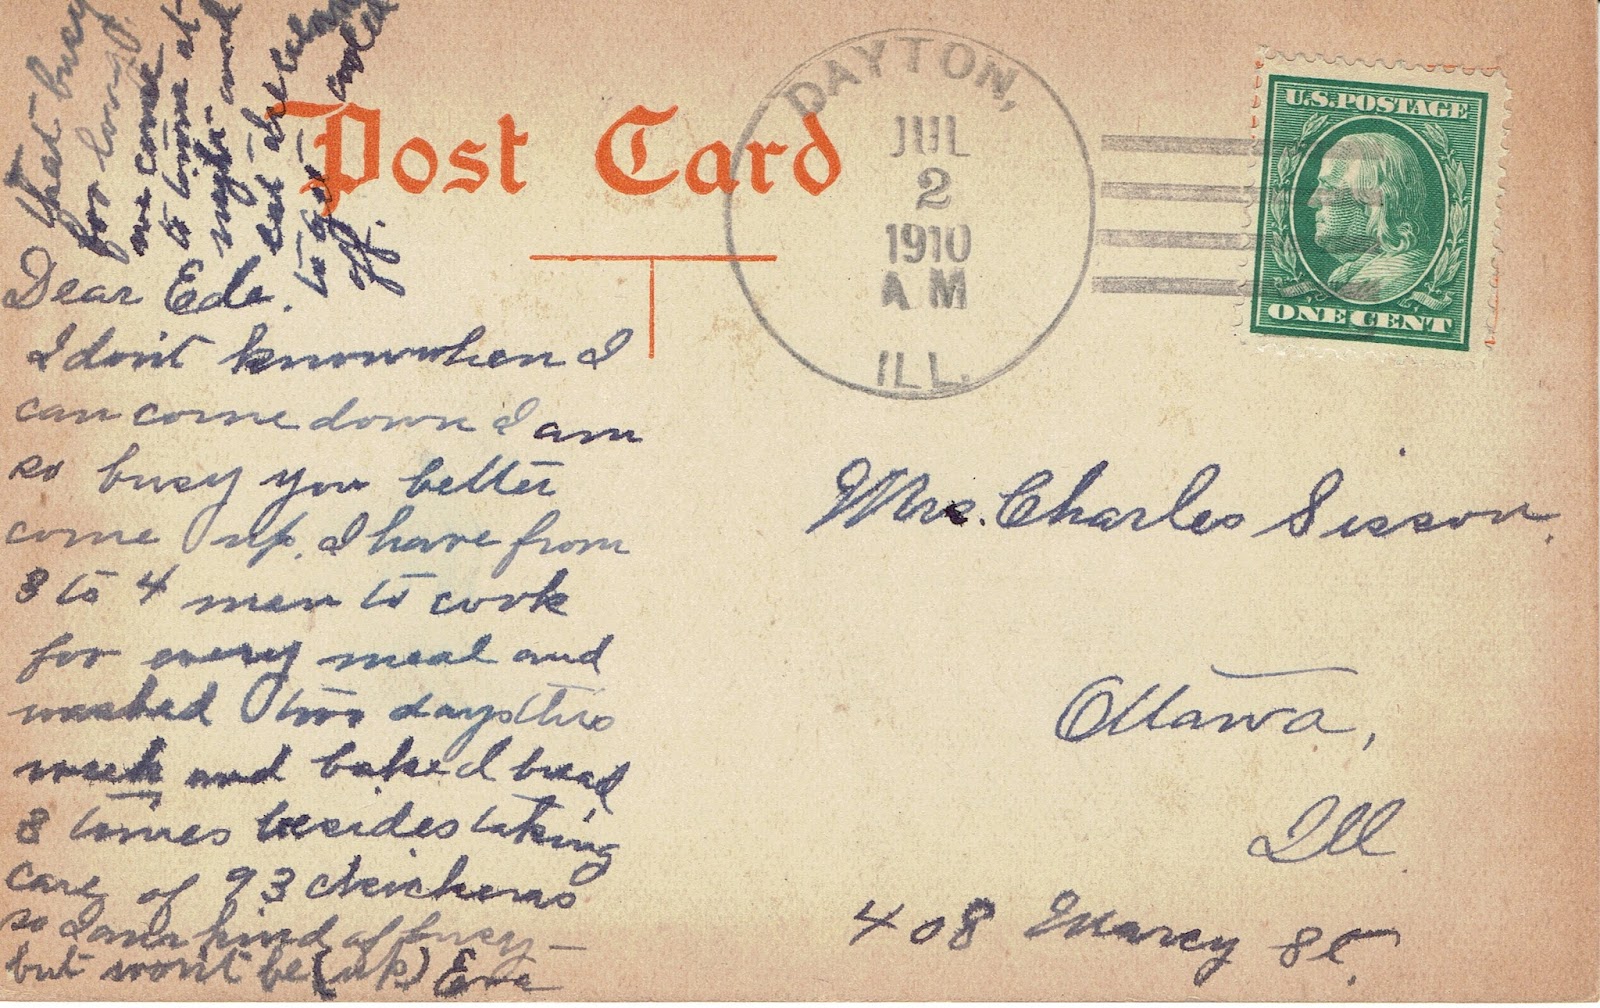 Post Card
DAYTON,
JUL
2
1910
A M
ILL.
U.S. POSTAGE
ONE CENT
Dear Ede.
I don't know when I
can come down I am
so busy you better
come up. I have from
3 to 4 men to cook
for every meal and
washed two days this
week and baked bread
3 times besides taking
care of 93 chickens
so I am kind of busy –
but won't be (up) Eva
that busy
for long.
come
to at
night and
eat
to get
off.
Mrs. Charles Sisson.
Ottawa,
Ill
408 Marcy St.